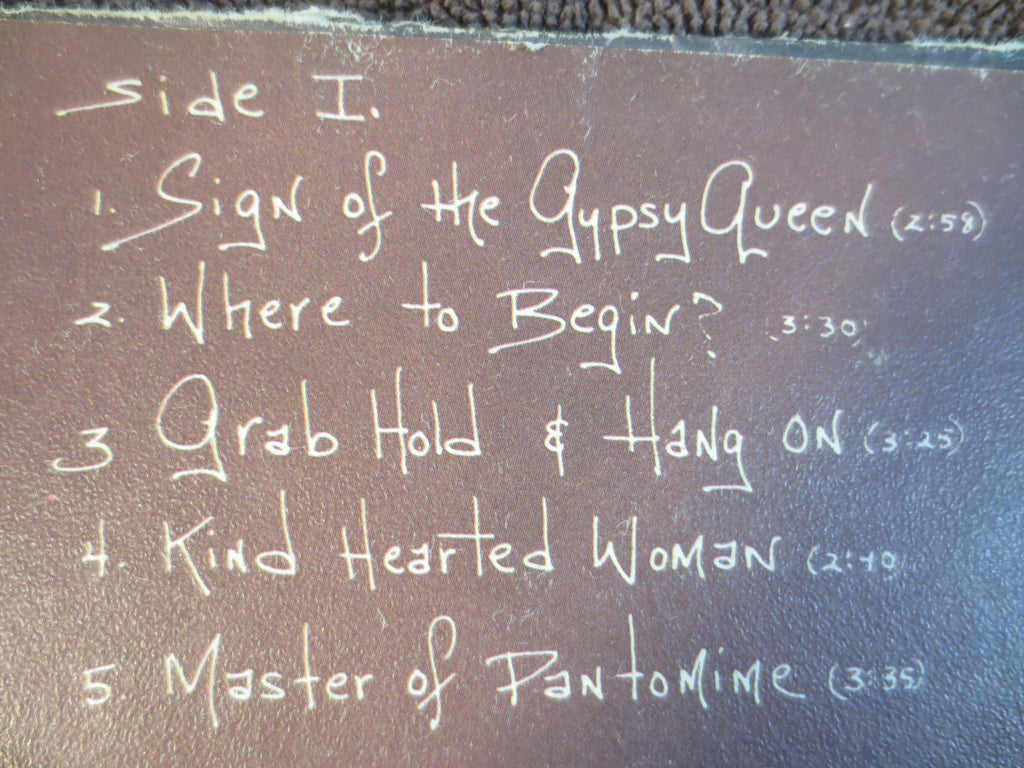 Side I.
1. Sign of the Gypsy Queen (2:58)
2. Where to Begin? 3:30
3 Grab Hold & Hang On (3:25)
4. Kind Hearted Woman
5. Master of Pantomime (3:35)